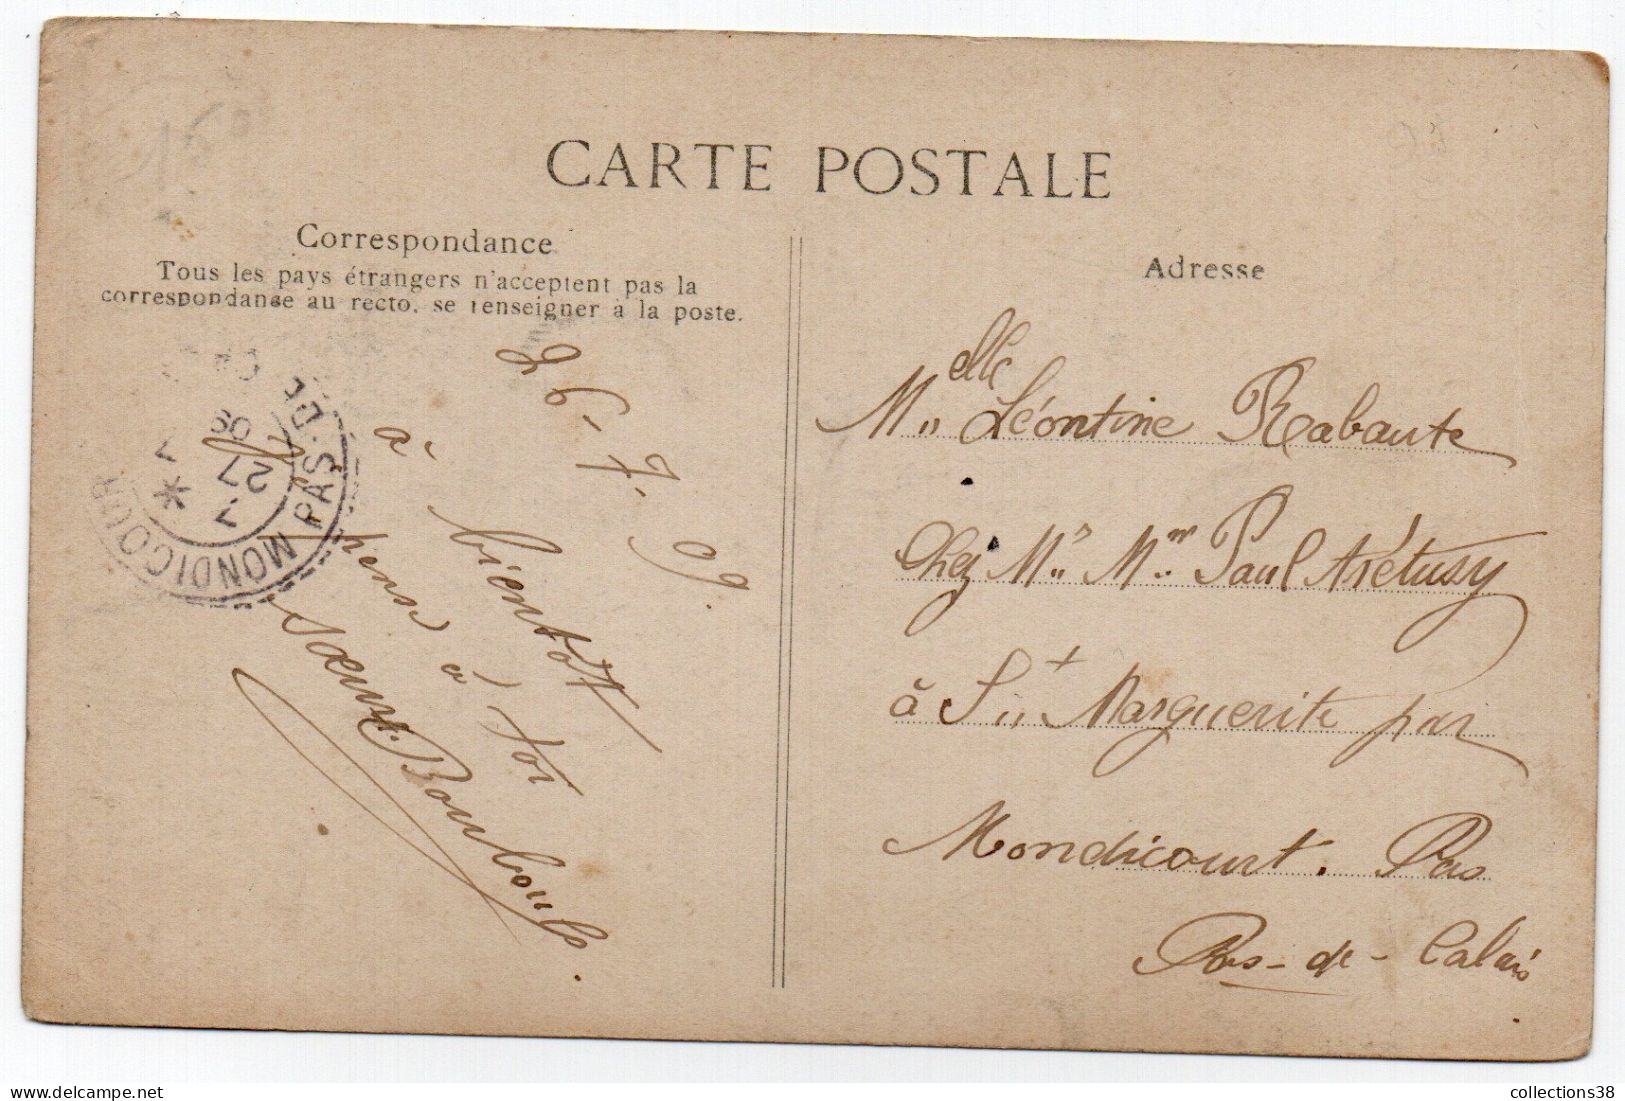 CARTE POSTALE
Correspondance
Tous les pays étrangers n'acceptent pas la
correspondanse au recto, se renseigner à la poste.
26-7.09.
à bientôt
pense à toi
sœur Bourbouls.
MONDICOUR PAS-DE-CA
7 *
27
7
09
Adresse
Melle Léontine Rabaute
Chez Mr Mme Paul Arétusy
à St Marguerite par
Mondicourt. Pas
Pas-de-Calais
www.delcampe.net
collections38